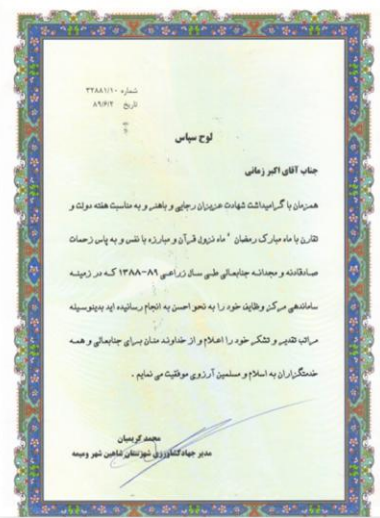 شماره ۳۲۸۸۱/۱۰
تاریخ ۸۹/۶/۲
لوح سپاس
جناب آقای اکبر زمانی
همزمان با گرامیداشت شهادت عزیزان رجایی و باهنر و به مناسبت هفته دولت و
تقارن با ماه مبارک رمضان " ماه نزول قرآن و مبارزه با نفس و به پاس زحمات
صادقانه و مجدانه جنابعالی طی سال زراعی ۸۹-۱۳۸۸ که در زمینه
ساماندهی مرکز وظایف خود را به نحو احسن به انجام رسانیده اید بدینوسیله
مراتب تقدیر و تشکر خود را اعلام و از خداوند منان برای جنابعالی و همه
خدمتگزاران به اسلام و مسلمین آرزوی موفقیت می نمایم .
محمد کریمیان
مدیر جهاد کشاورزی شهرستان شاهین شهر و میمه